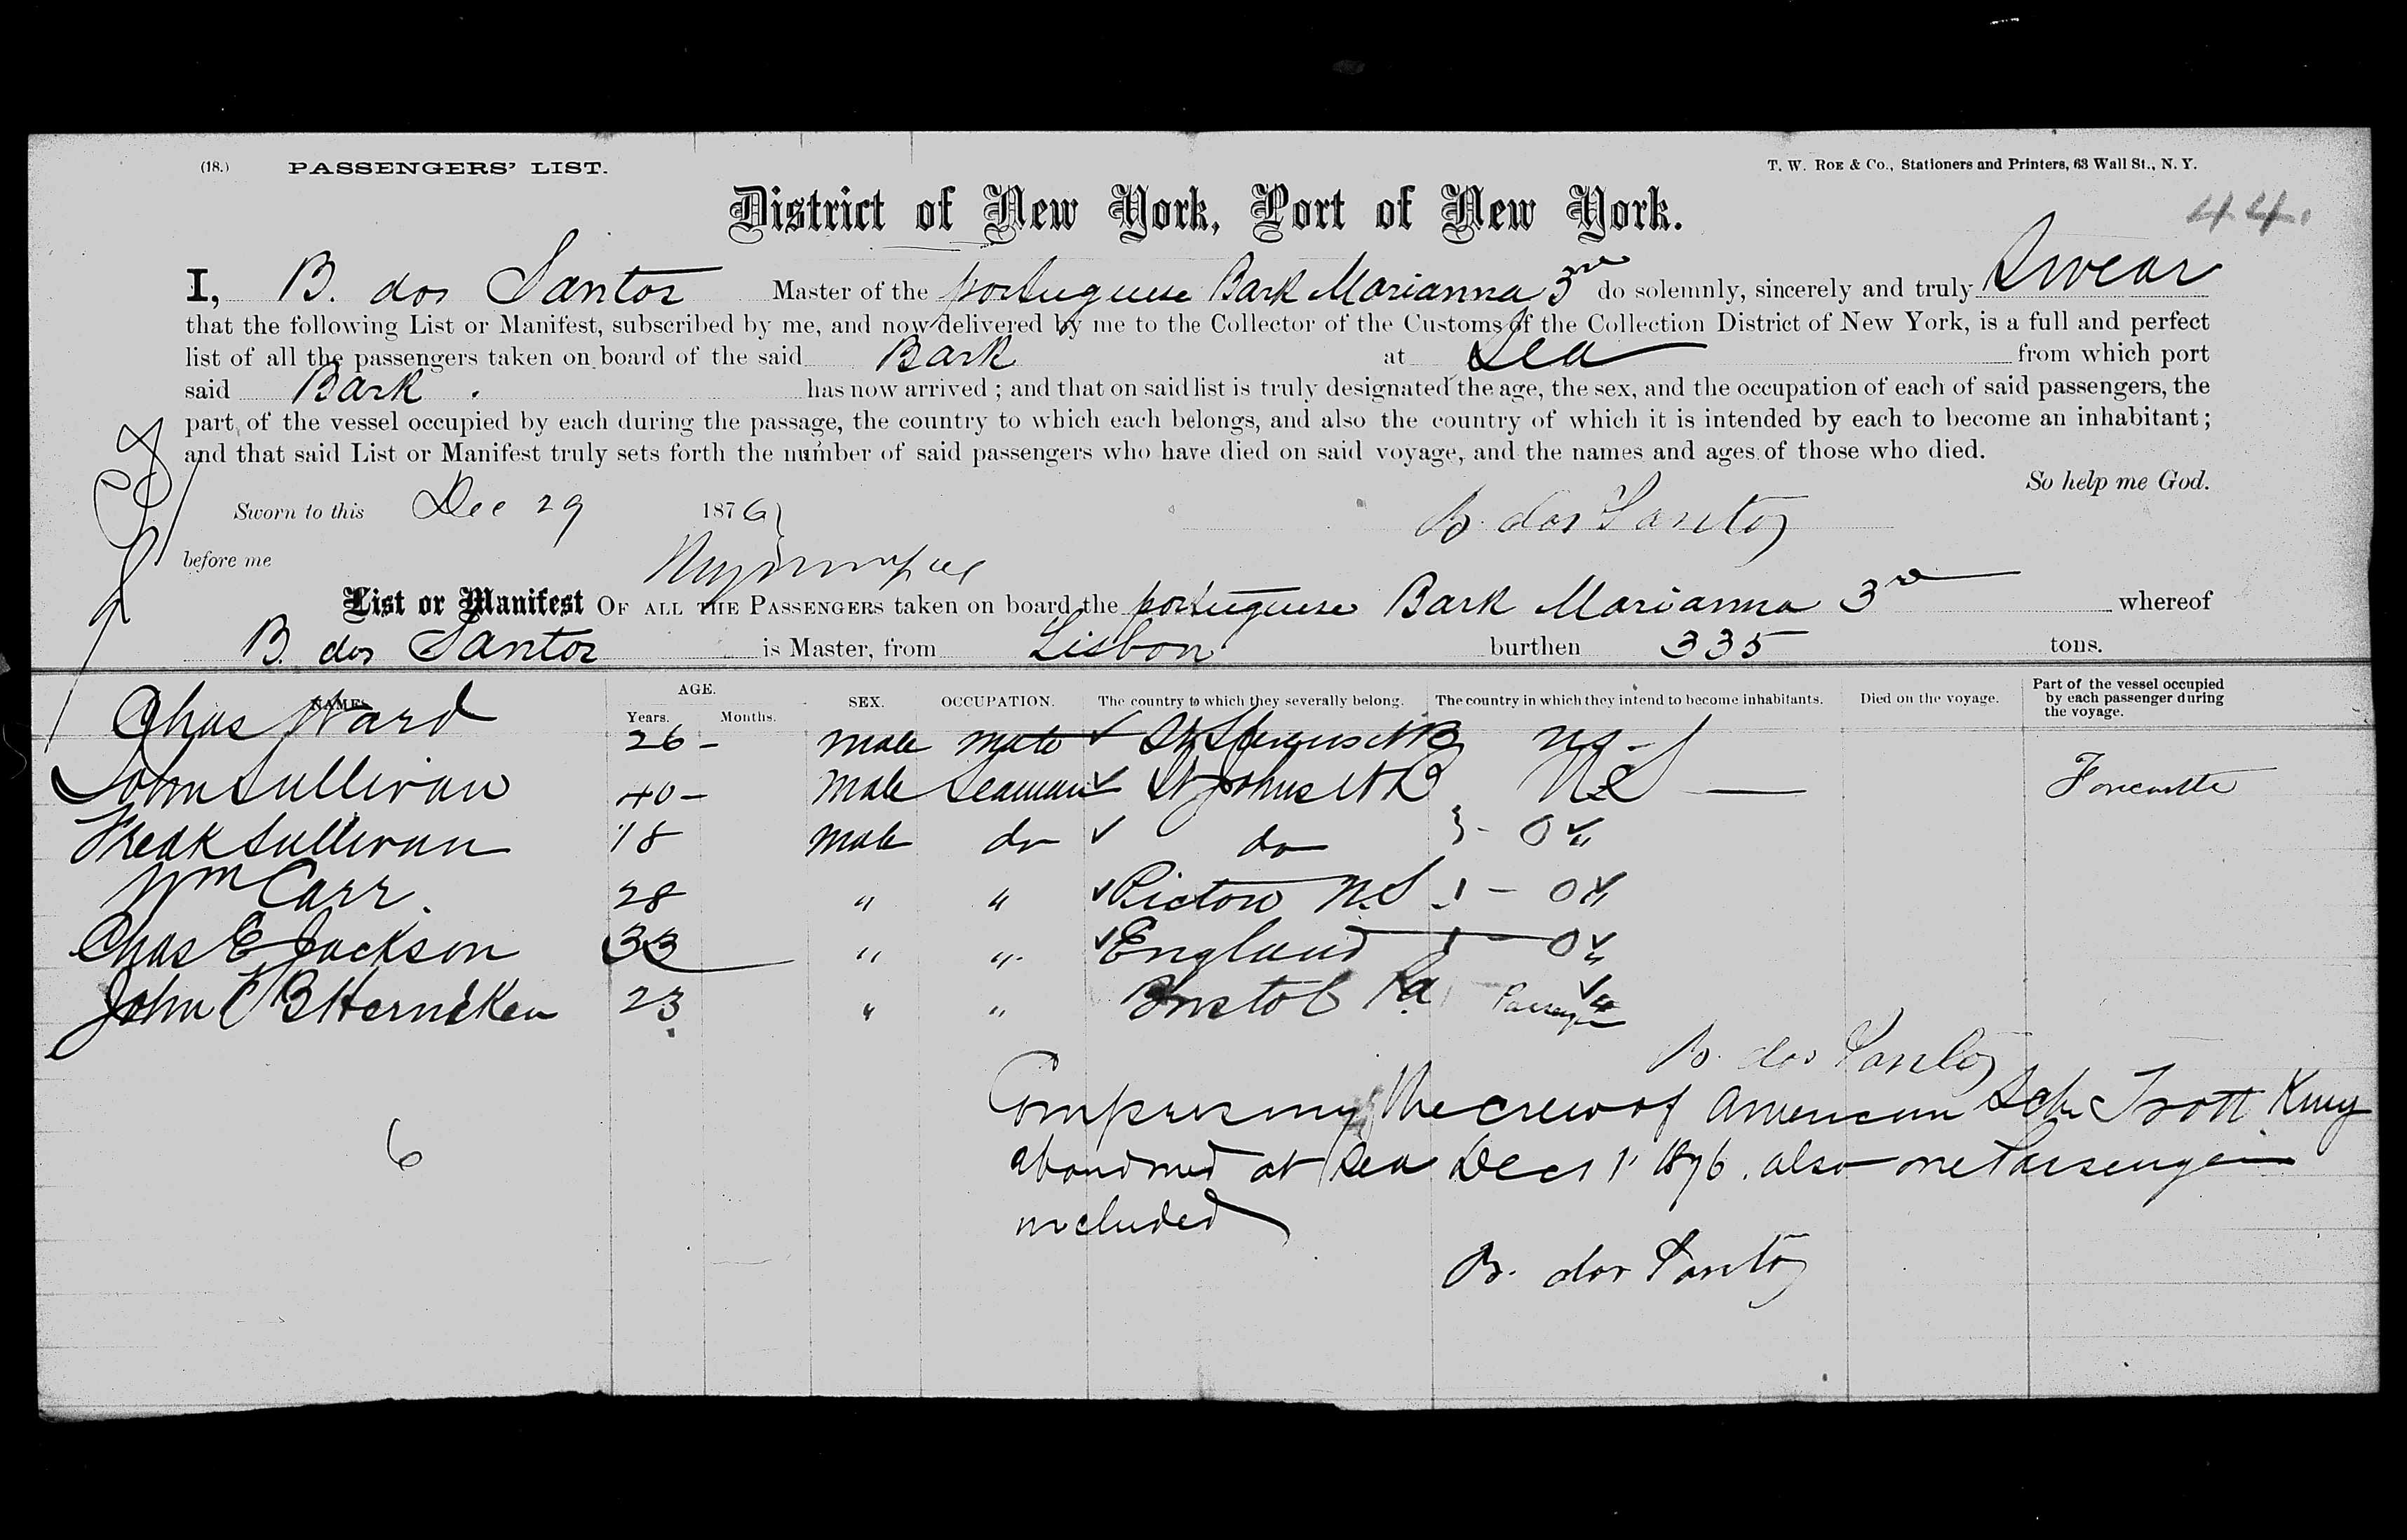 (18.) PASSENGERS' LIST. T. W. ROE & Co., Stationers and Printers, 63 Wall St., N. Y.
44.
District of New York, Port of New York.
I, B. dos Santos Master of the portuguese Bark Marianna 3rd do solemnly, sincerely and truly Swear
that the following List or Manifest, subscribed by me, and now delivered by me to the Collector of the Customs of the Collection District of New York, is a full and perfect
list of all the passengers taken on board of the said Bark at Sea from which port
said Bark. has now arrived; and that on said list is truly designated the age, the sex, and the occupation of each of said passengers, the
part of the vessel occupied by each during the passage, the country to which each belongs, and also the country of which it is intended by each to become an inhabitant;
and that said List or Manifest truly sets forth the number of said passengers who have died on said voyage, and the names and ages of those who died.
So help me God.
Sworn to this Dec 29 1876 B. dos Santos
before me
List or Manifest OF ALL THE PASSENGERS taken on board the portuguese Bark Marianna 3rd whereof
B. dos Santos is Master, from Lisbon burthen 335 tons.
NAMES. AGE. Years. Months. SEX. OCCUPATION. The country to which they severally belong. The country in which they intend to become inhabitants. Died on the voyage. Part of the vessel occupied by each passenger during the voyage.
Chas Ward 26 - male mate
John Sullivan 40 - Male Seaman St Johns N B U S Forecastle
Sullivan 18 Male do do
Wm Carr. 28 " " Pictou N.S
Chas E Jackson 33 " " England
John 23 " " Bristol Pa Passenger
B. dos Santos
Comprising the crew of American Sch Trott King
abandoned at Sea Decr 1st 1876. also one Passenger
included
6
B. dos Santos